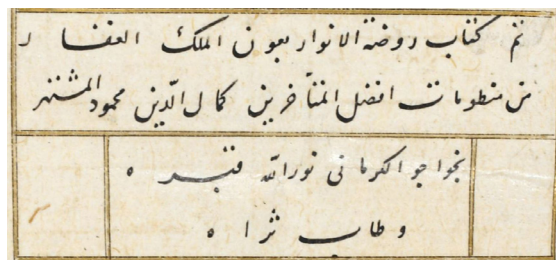 تم كتاب روضة الانوار بعون الملك الغفار
من منظومات افضل المتأخرين كمال الدّين محمود المشتهر
بخواجو الكرمانى نورالله قبره
وطاب ثراه